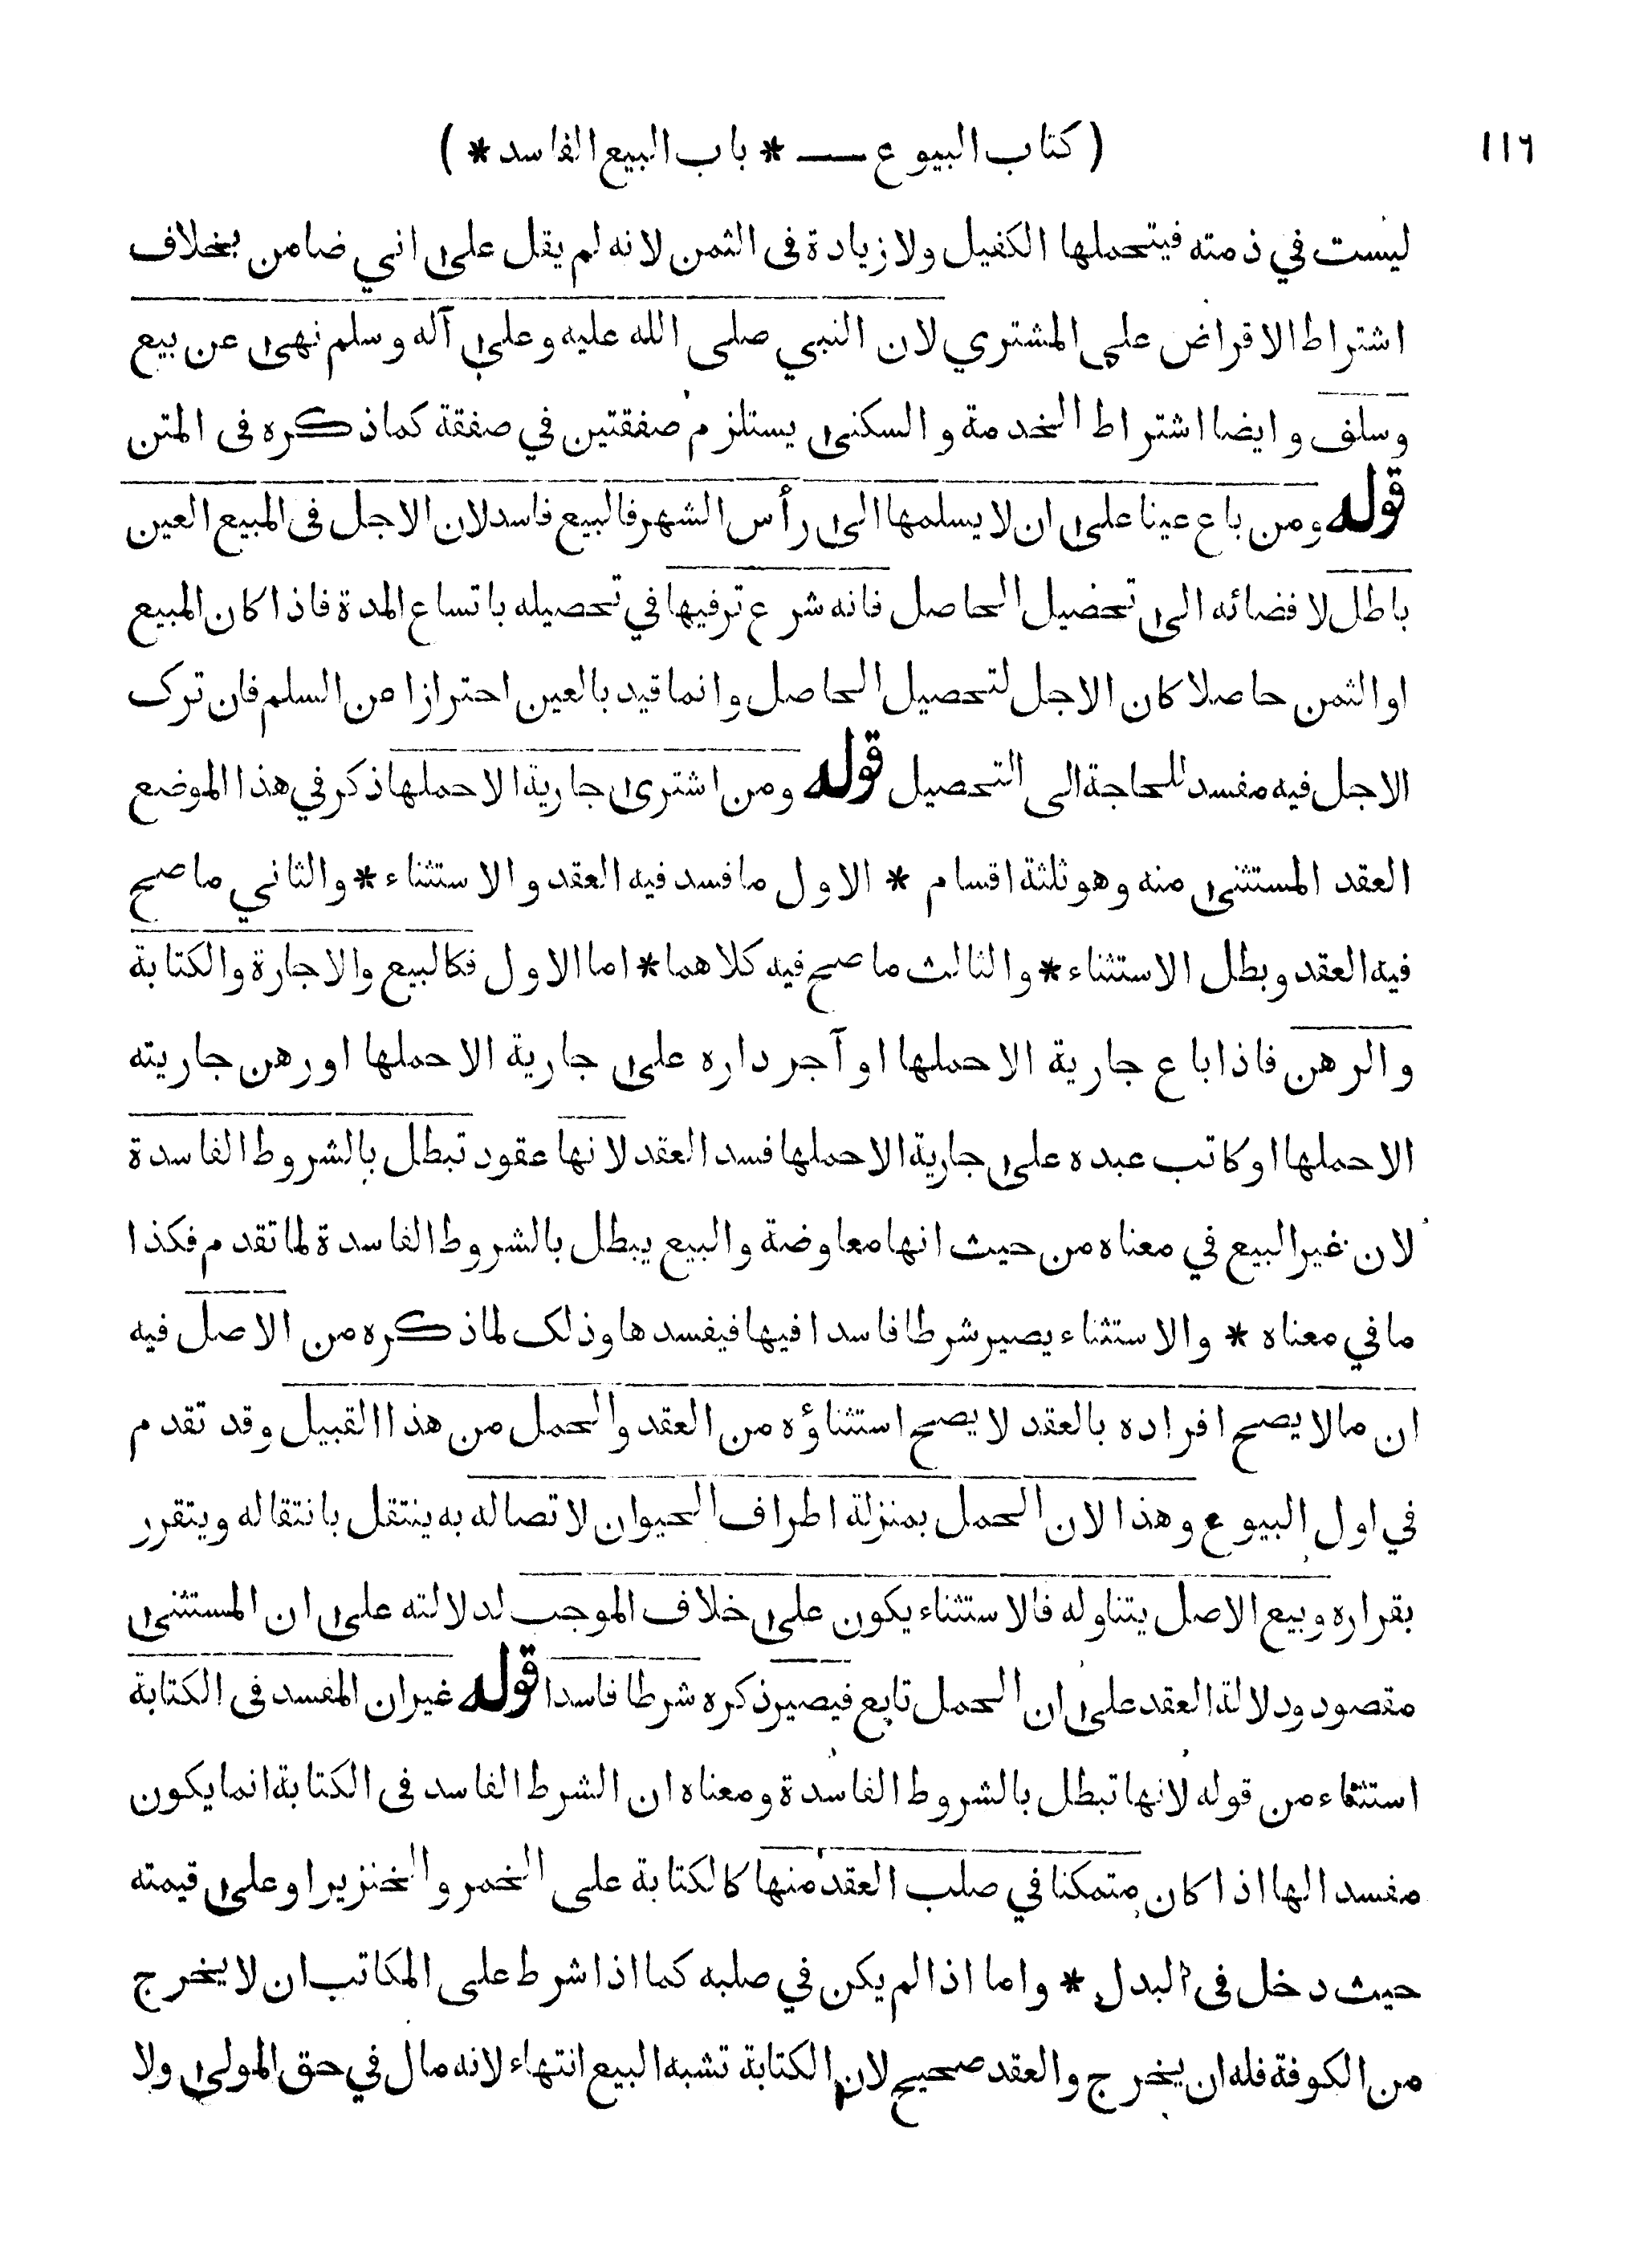 ١١٦
( كتاب البيوع — * باب البيع الفاسد * )
ليست في ذمته فيتحملها الكفيل ولا زيادة فى الثمن لانه لم يقل على اني ضامن بخلاف
اشتراط الاقراض على المشتري لان النبي صلى الله عليه وعلى آله وسلم نهى عن بيع
وسلف وايضا اشتراط الخدمة والسكنى يستلزم صفقتين في صفقة كما ذكره فى المتن
قوله ومن باع عينا على ان لا يسلمها الى رأس الشهر فالبيع فاسد لان الاجل فى المبيع العين
باطل لافضائه الى تحصيل الحاصل فانه شرع ترفيها في تحصيله باتساع المدة فاذا كان المبيع
او الثمن حاصلا كان الاجل لتحصيل الحاصل وانما قيد بالعين احترازا من السلم فان ترك
الاجل فيه مفسد للحاجة الى التحصيل قوله ومن اشترى جارية الا حملها ذكر في هذا الموضع
العقد المستثنى منه وهو ثلثة اقسام * الاول ما فسد فيه العقد والاستثناء * والثاني ما صح
فيه العقد وبطل الاستثناء * والثالث ما صح فيه كلاهما * اما الاول فكالبيع والاجارة والكتابة
والرهن فاذا باع جارية الا حملها او آجر داره على جارية الا حملها او رهن جاريته
الا حملها او كاتب عبده على جارية الا حملها فسد العقد لانها عقود تبطل بالشروط الفاسدة
لان غير البيع في معناه من حيث انها معاوضة والبيع يبطل بالشروط الفاسدة لما تقدم فكذا
ما في معناه * والاستثناء يصير شرطا فاسدا فيها فيفسدها وذلك لما ذكره من الاصل فيه
ان ما لا يصح افراده بالعقد لا يصح استثناؤه من العقد والحمل من هذا القبيل وقد تقدم
في اول البيوع وهذا لان الحمل بمنزلة اطراف الحيوان لاتصاله به ينتقل بانتقاله ويتقرر
بقراره وبيع الاصل يتناوله فالاستثناء يكون على خلاف الموجب لدلالته على ان المستثنى
مقصود ودلالة العقد على ان الحمل تابع فيصير ذكره شرطا فاسدا قوله غير ان المفسد فى الكتابة
استثناء من قوله لانها تبطل بالشروط الفاسدة ومعناه ان الشرط الفاسد فى الكتابة انما يكون
مفسدا لها اذا كان متمكنا في صلب العقد منها كالكتابة على الخمر والخنزير او على قيمته
حيث دخل فى البدل * واما اذا لم يكن في صلبه كما اذا شرط على المكاتب ان لا يخرج
من الكوفة فله ان يخرج والعقد صحيح لان الكتابة تشبه البيع انتهاء لانه مال في حق المولى ولا